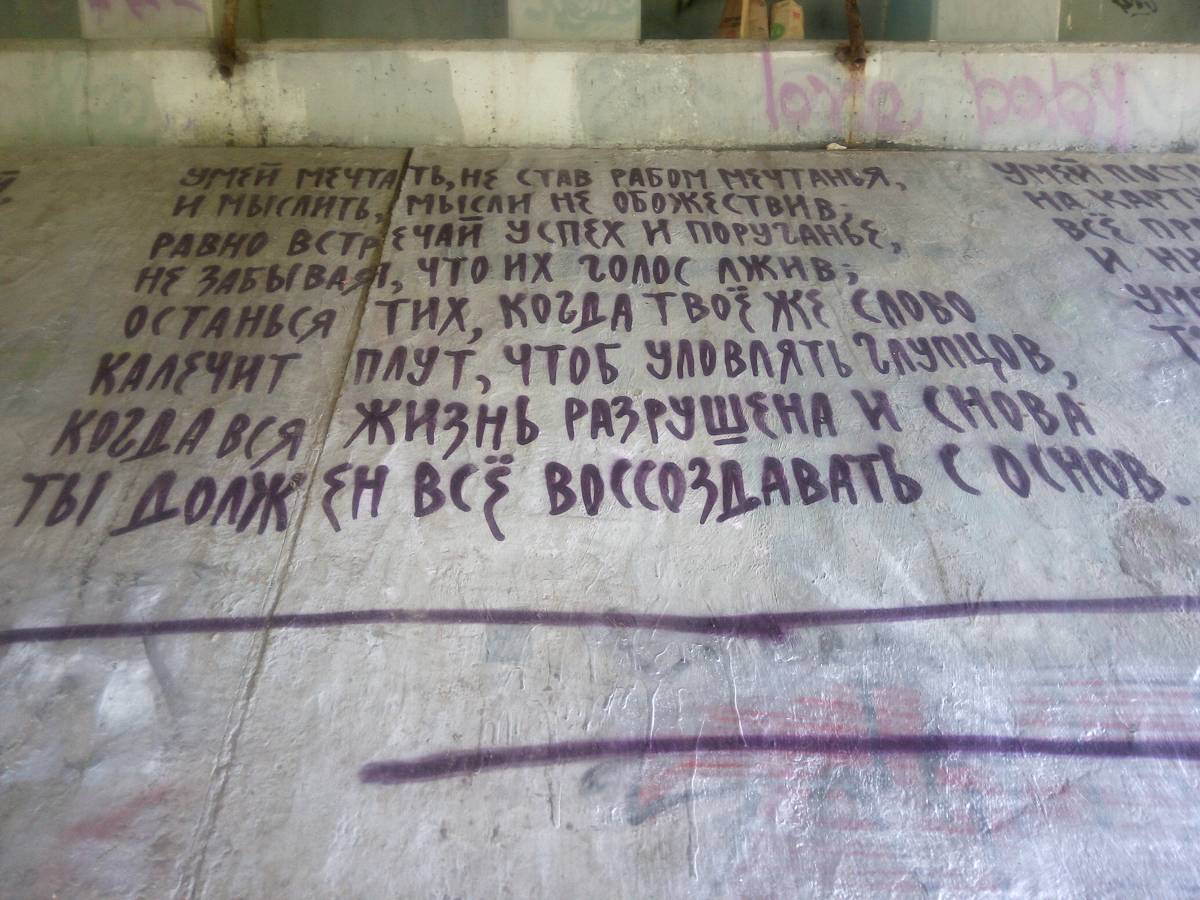 УМЕЙ МЕЧТАТЬ, НЕ СТАВ РАБОМ МЕЧТАНЬЯ,
И МЫСЛИТЬ, МЫСЛИ НЕ ОБОЖЕСТВИВ;
РАВНО ВСТРЕЧАЙ УСПЕХ И ПОРУГАНЬЕ,
НЕ ЗАБЫВАЯ, ЧТО ИХ ГОЛОС ЛЖИВ;
ОСТАНЬСЯ ТИХ, КОГДА ТВОЁ ЖЕ СЛОВО
КАЛЕЧИТ ПЛУТ, ЧТОБ УЛОВЛЯТЬ ГЛУПЦОВ,
КОГДА ВСЯ ЖИЗНЬ РАЗРУШЕНА И СНОВА
ТЫ ДОЛЖЕН ВСЁ ВОССОЗДАВАТЬ С ОСНОВ.
УМЕЙ
НА
ВСЁ
И